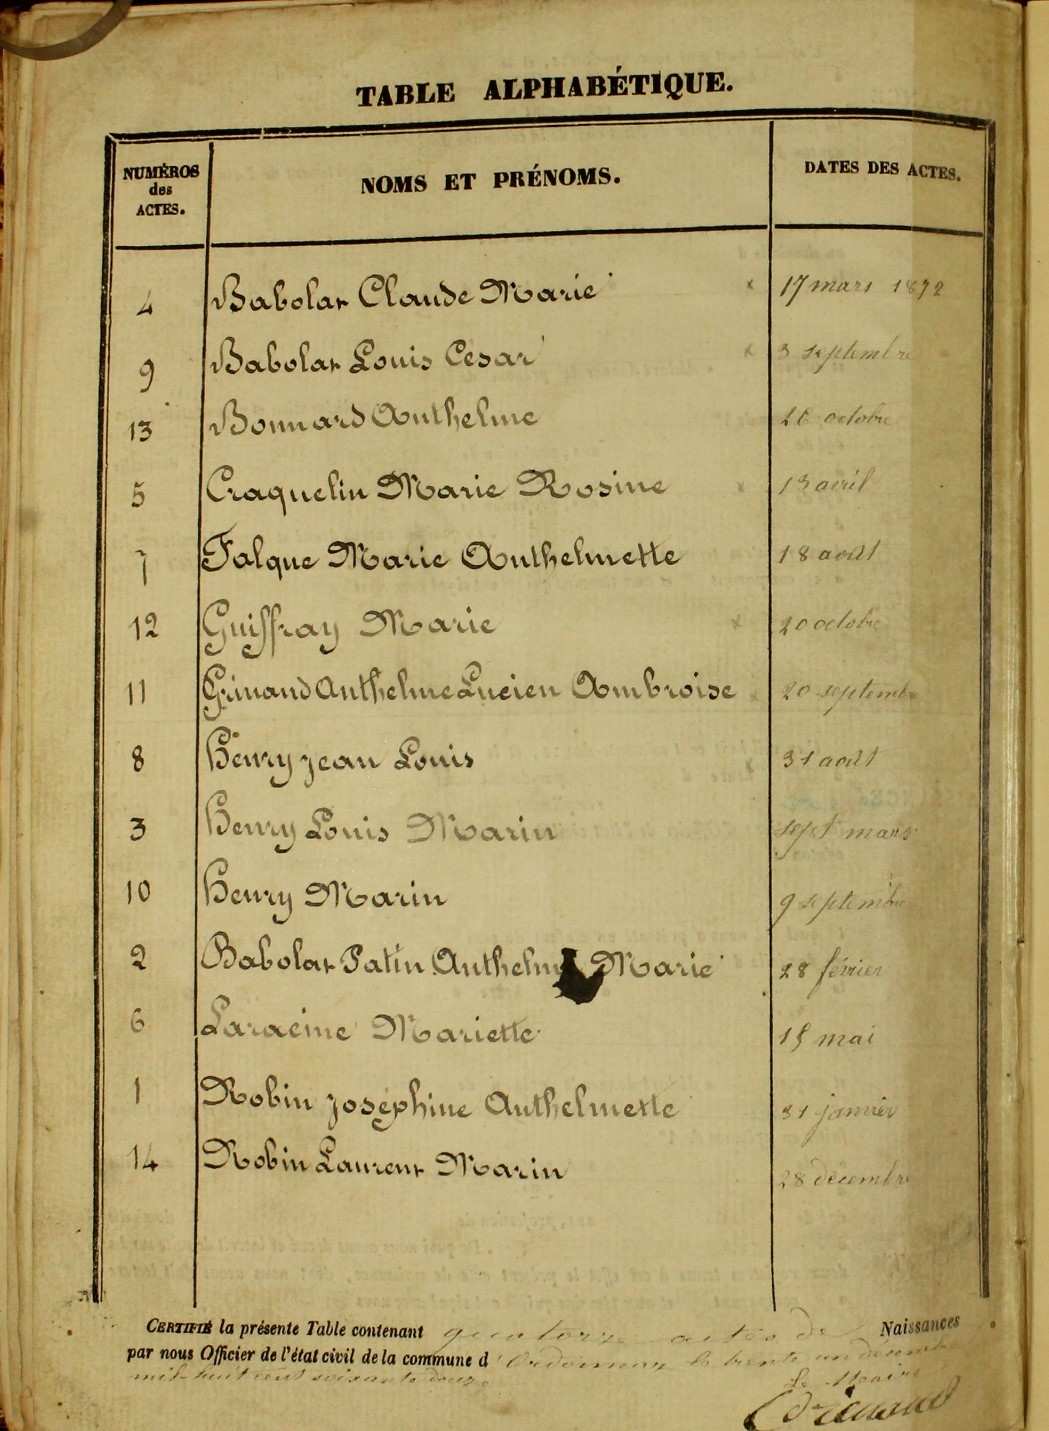 TABLE ALPHABÉTIQUE.
NUMÉROS des ACTES. NOMS ET PRÉNOMS. DATES DES ACTES.
4 Babolat Claude Marie x 17 mars 1872
9 Babolat Louis César x 3 septembre
13 Bonnard Anthelme 26 octobre
5 Craquelin Marie Rosine x 13 avril
7 Falque Marie Anthelmette 18 août
12 Guiffray Marie x 20 octobre
11 Grinand Anthelme Lucien Ambroise x 20 septembre
8 Henry Jean Louis x 31 août
3 Henry Louis Marin sept mars
10 Henry Marin 9 septembre
2 Babolat Patin Anthelme Marie 28 février
6 Laracine Mariette 15 mai
1 Robin Joséphine Anthelmette 31 janvier
14 Robin Laurent Marin 28 décembre
CERTIFIÉ la présente Table contenant quatorze actes de Naissances
par nous Officier de l'état civil de la commune d'Ordonnaz le trente un décembre
mil huit cent soixante douze
Le Maire